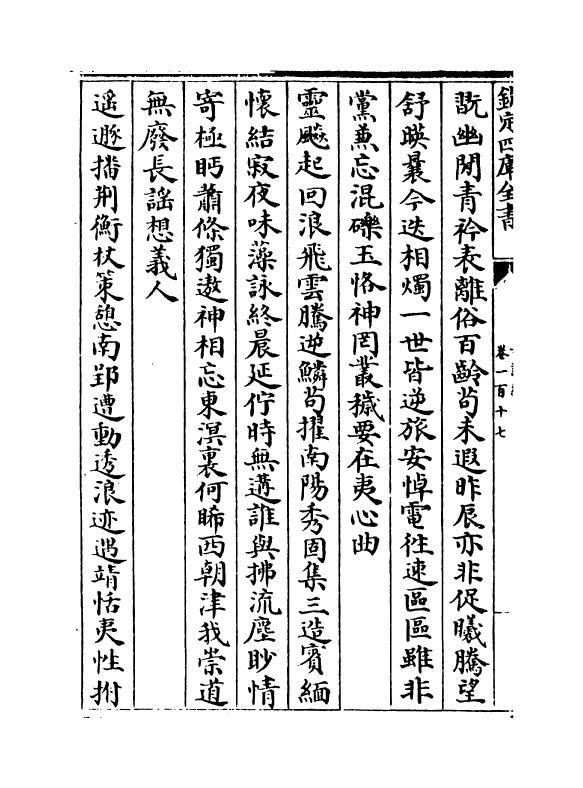 欽定四庫全書
卷一百十七
既幽閒青衿表離俗百齡苟未遐昨辰亦非促曦騰望
舒暎曩今迭相燭一世皆逆旅安悼電往速區區雖非
黨兼忘混礫玉恪神罔叢穢要在夷心曲
靈飈起回浪飛雲騰逆鱗苟擢南陽秀固集三造賓緬
懷結寂夜味藻詠終晨延佇時無遘誰與拂流塵眇情
寄極眄蕭條獨遨神相忘東溟裏何晞西朝津我崇道
無廢長謡想義人
遥遯播荆衡杖策憩南郢遭動透浪迹遇靖恬夷性拊